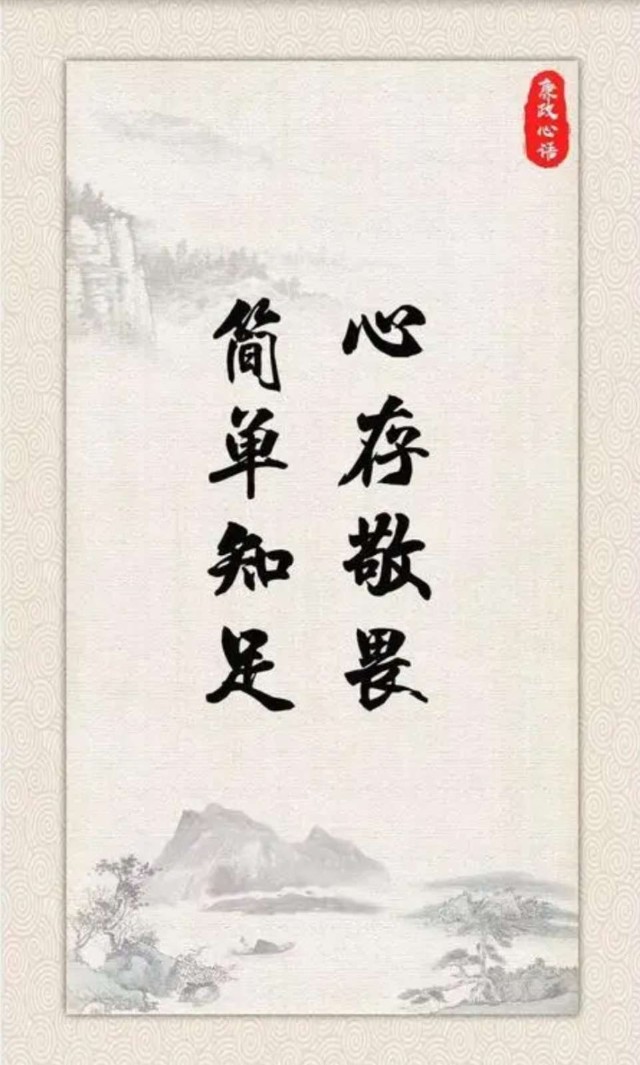 廉政心语
心存敬畏
简单知足